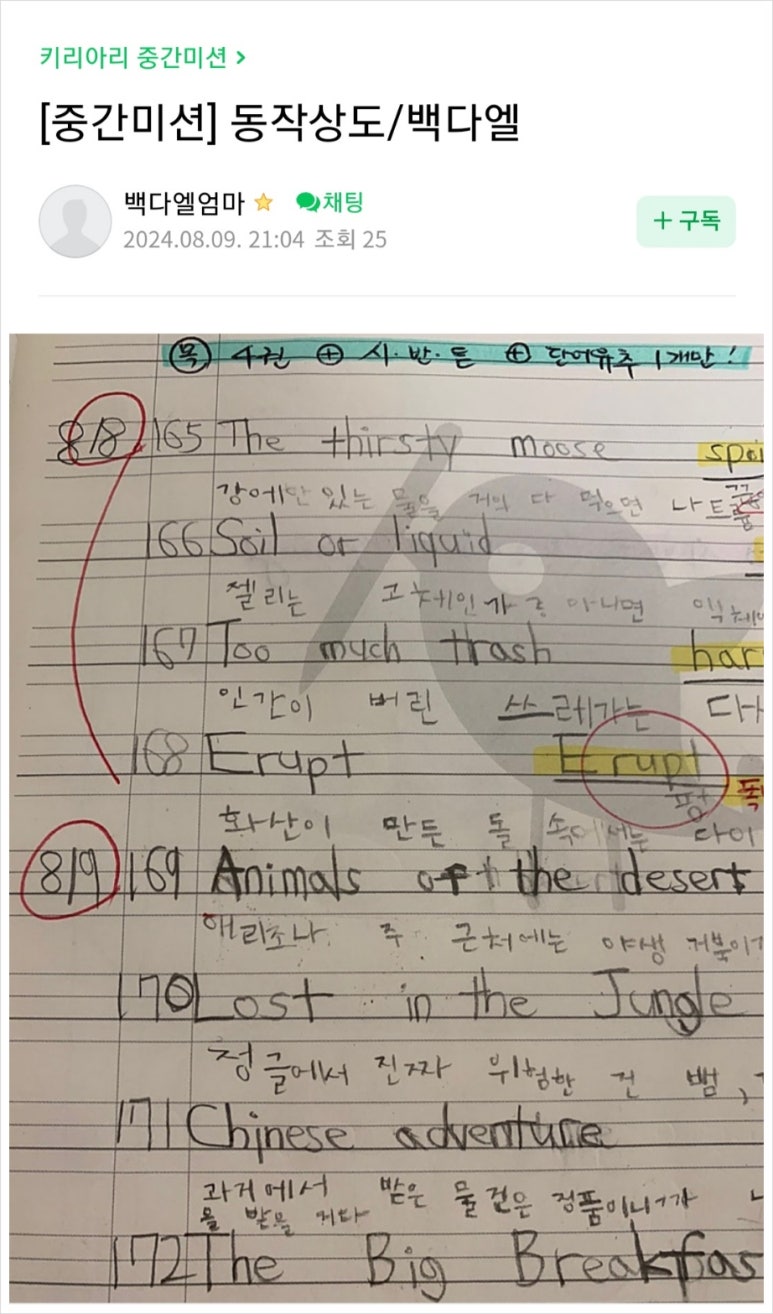 키리아리 중간미션 >
[중간미션] 동작상도/백다엘
백다엘엄마 채팅
2024.08.09. 21:04 조회 25
+ 구독
목 4권 + 시·반·튼 + 단어유추 1개만!
8/8 165 The thirsty moose spoi
강에만 있는 물을 거의 다 먹으면 나
166 Soil or liquid
젤리는 고체인가 아니면
167 Too much trash har
인간이 버린 쓰레기는 다시
168 Erupt Erupt
펑
화산이 만든 돌 속에서는 다이
8/9 169 Animals of the desert
애리조나 주 근처에는 야생 거북이가
170 Lost in the Jungle
정글에서 진짜 위험한 건 뱀,
171 Chinese adventure
과거에서 받은 물건은 정품이니까
172 The Big Breakfas